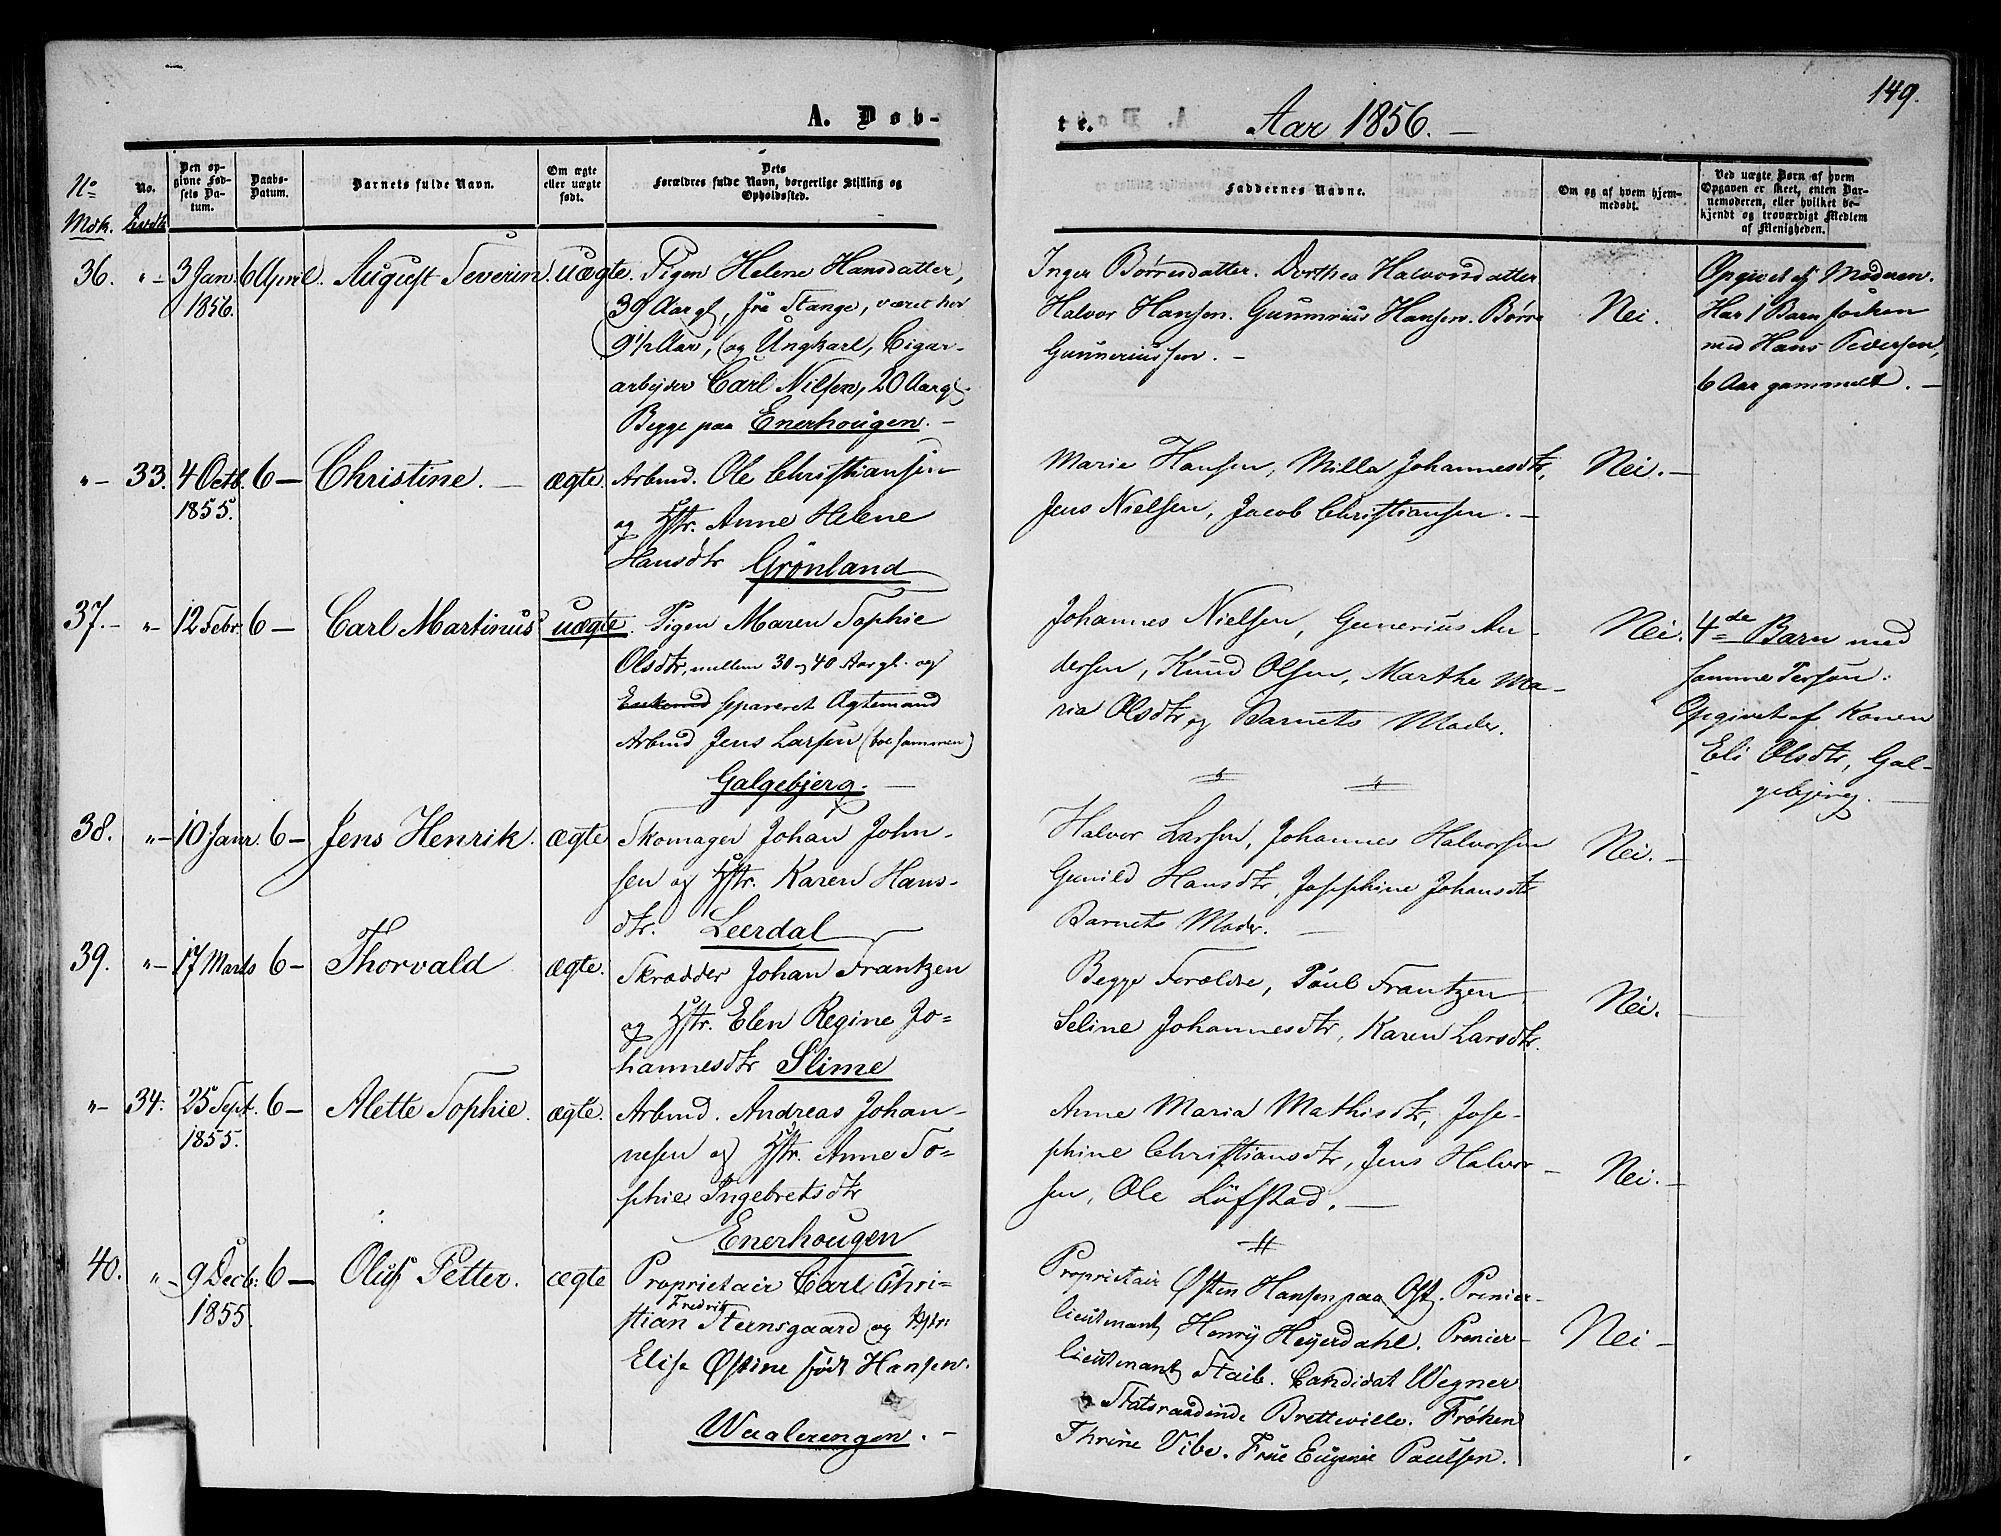 149.
A. Døb-
te.
Aar 1856.
No Mdk.
No. Qvdk.
Den op-
givne Fød-
sels Da-
tum.
Daabs-
Datum.
Barnets fulde Navn.
Om ægte
eller uægte
født.
Dets
Forældres fulde Navn, borgerlige Stilling og
Opholdssted.
Faddernes Navne.
Om og af hvem hjem-
medøbt.
Ved uægte Børn af hvem
Opgaven er skeet, enten Bar-
nemoderen, eller hvilket be-
kjendt og troværdigt Medlem
af Menigheden.
36. " 3 Jan. 6 April. August Severin. uægte. Pigen Helene Hansdatter,
1856.
39 Aar gl, fra Stange, været her
9 1/2 Aar, og Ungkarl, Cigar-
arbejder Carl Nilsen, 20 Aar gl.
Begge paa Enerhougen. -
Inger Børresdatter. Dorthea Halvorsdatter
Halvor Hansen. Gunnerius Hansen. Børre
Gunneriussen. -
Nei.
Opgivet af Moderen.
Har 1 Barn forhen
med Hans Pedersen,
6 Aar gammelt. -
" 33. 4 Octb. 6 - Christine. - ægte. Arbmd. Ole Christiansen
1855.
og Hstr. Anne Helene
Hansdtr Grønland
Marie Hansen, Milla Johannesdtr,
Jens Nielsen, Jacob Christiansen. -
Nei. -
37. - " 12 Febr. 6 - Carl Martinus uægte. Pigen Maren Sophie
Olsdtr, mellem 30 og 40 Aar gl. og
Enkemd separeret Ægtemand
Arbmd Jens Larsen (boe sammen)
Galgebjerg. -
Johannes Nielsen, Gunerius An-
dersen, Knud Olsen, Marthe Ma-
ria Olsdtr og Barnets Moder.
Nei.
4de Barn med
samme Person.
Opgivet af Konen
Eli Olsdtr, Gal-
gebjerg. -
38. " 10 Janr. 6 - Jens Henrik. ægte Skomager Johan John-
sen og Hstr. Karen Hans-
dtr. Leerdal
Halvor Larsen, Johannes Halvorsen
Gunild Hansdtr, Josephine Johansdtr
Barnets Moder. -
Nei. -
39. " 17 Marts 6 - Thorvald ægte. Skrædder Johan Frantzen
og Hstr. Elen Regine Jo-
hannesdtr Slime
Begge Forældre, Poul Frantzen
Seline Johannesdtr, Karen Larsdtr.
Nei.
" 34. 25 Sept. 6 - Alette Sophie. ægte. Arbmd. Andreas Johan-
1855.
nesen og Hstr. Anne So-
phie Ingebretsdtr
Enerhougen
Anne Maria Mathisdtr, Jose-
phine Christiansdtr, Jens Halvor-
sen, Ole Løfstad. -
Nei. -
40. " 9 Decb: 6 - Oluf Petter. ægte Proprietair Carl Chri-
1855.
stian Fredrik Steensgaard og Hstr:
Elise Østine født Hansen.
Waalerengen. -
Proprietair Østen Hansen paa Øst. Premier-
lieutenant Henry Heyerdahl. Premier-
lieutenant Staib. Candidat Wegner
Statsraadinde Bretteville. Frøken
Thrine Vibe. Frue Eugenie Paulsen.
Nei -